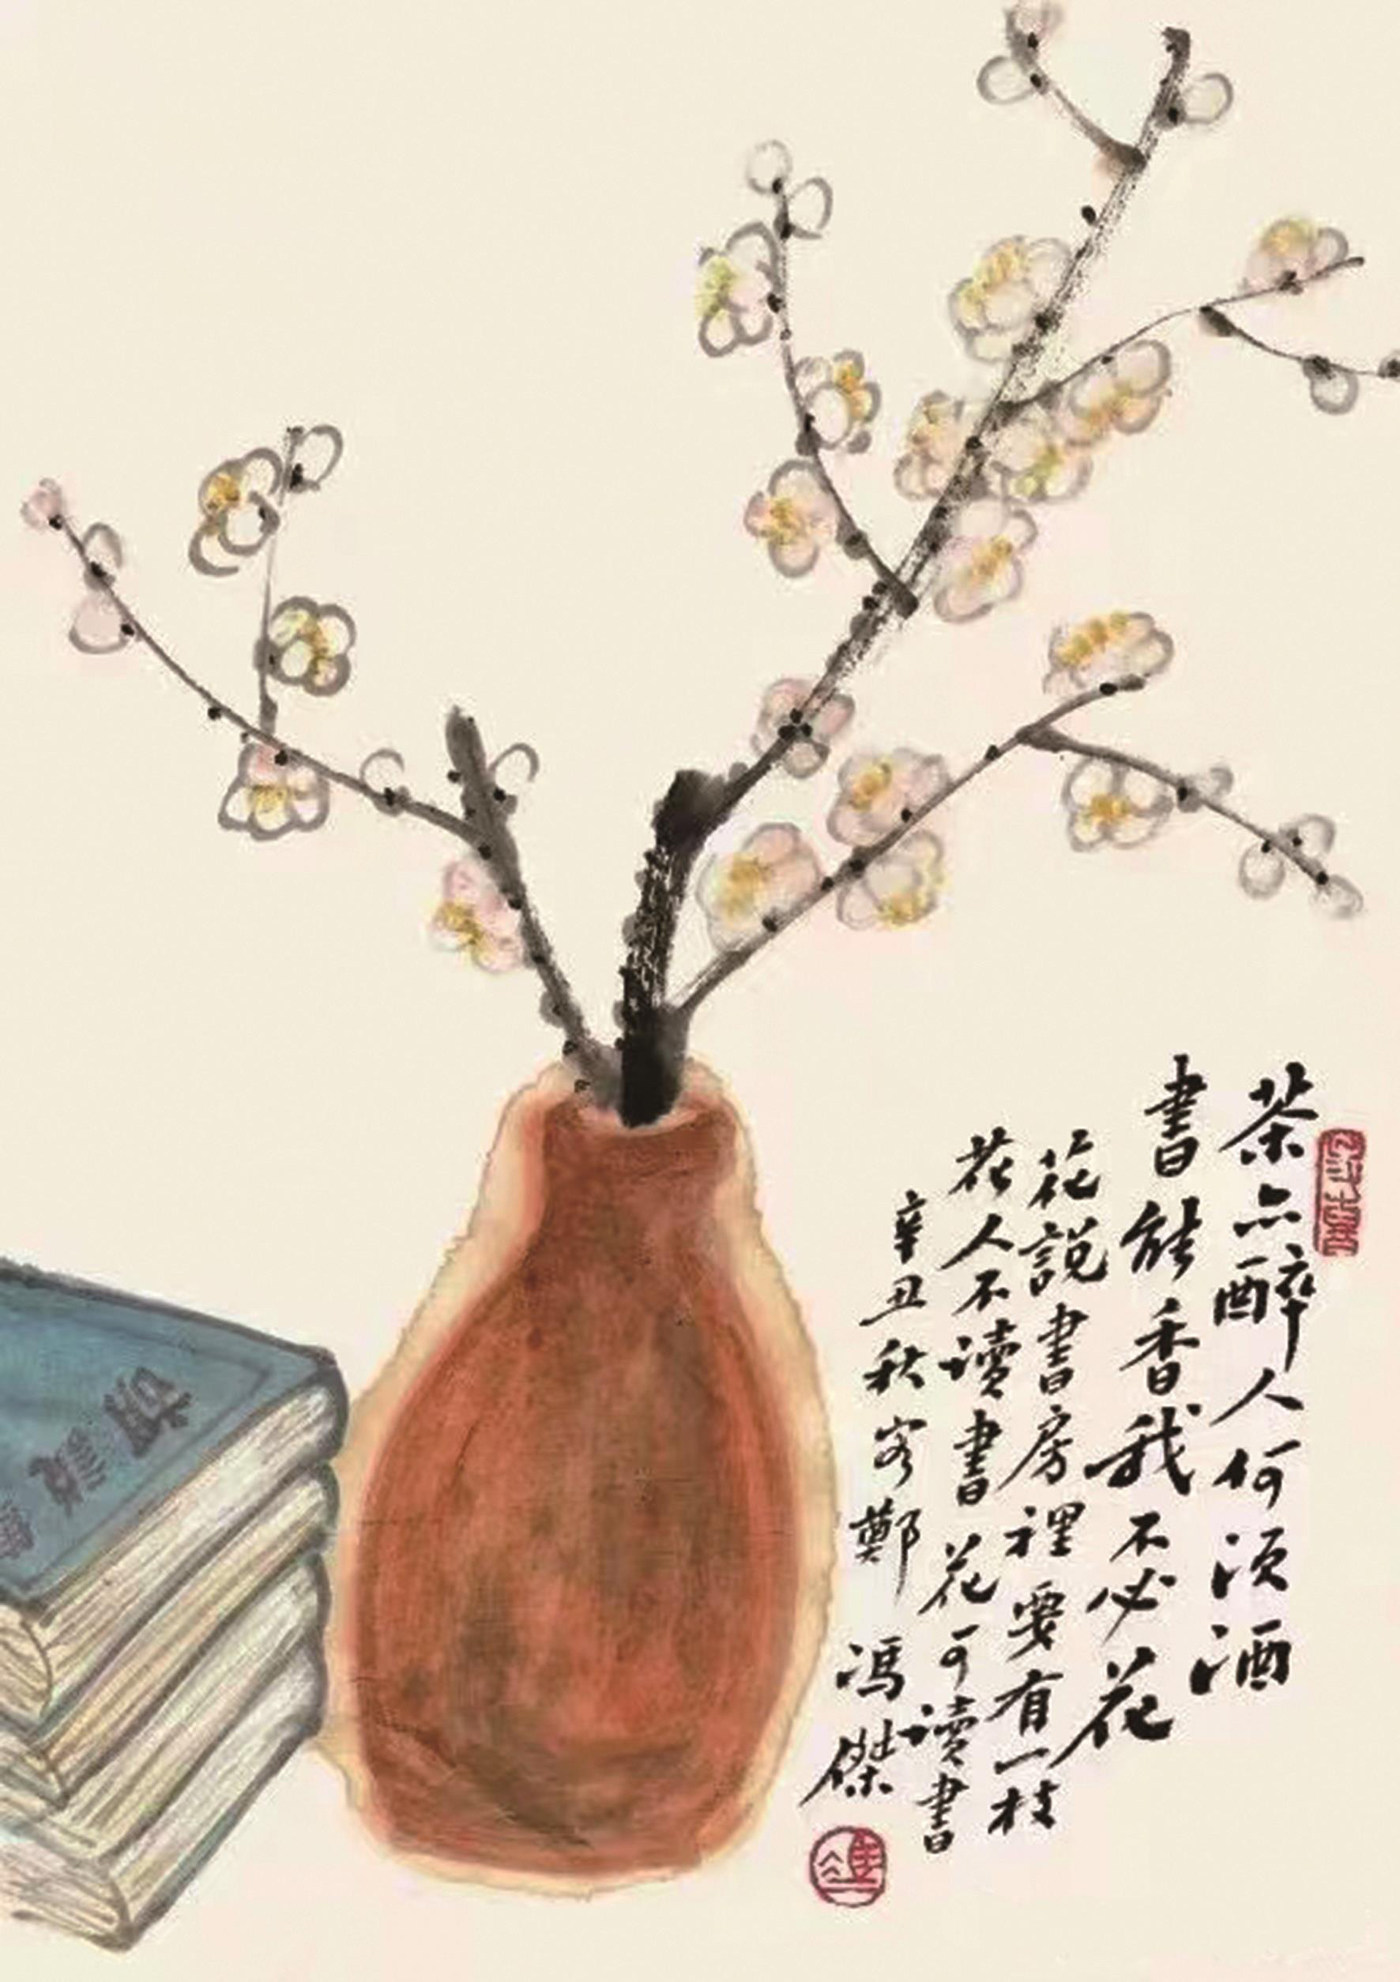 茶亦醉人何须酒
書能香我不必花
花說書房裡要有一枝
花人不讀書花可讀書
辛丑秋客鄭
馮傑